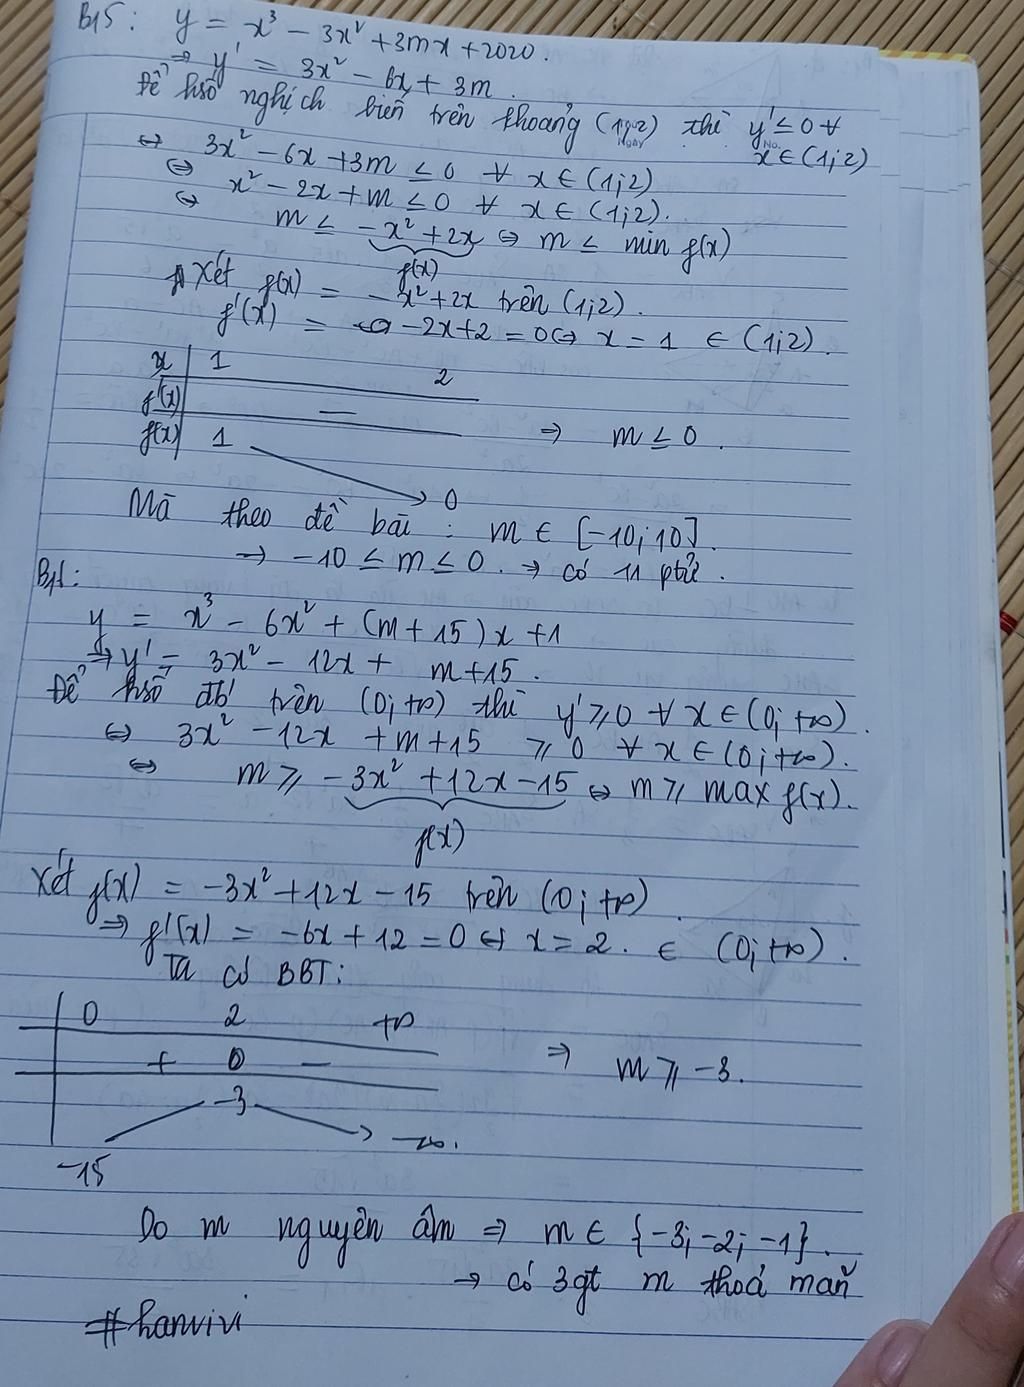 B15: y = x³ - 3x² + 3mx + 2020.
⇒ y' = 3x² - 6x + 3m.
Để hsố nghịch biến trên khoảng (1;2) thì y' ≤ 0 ∀
x ∈ (1;2)
⇔ 3x² - 6x + 3m ≤ 0 ∀ x ∈ (1;2)
⇔ x² - 2x + m ≤ 0 ∀ x ∈ (1;2).
⇔ m ≤ -x² + 2x ⇔ m ≤ min f(x)
f(x)
Xét f(x) = -x² + 2x trên (1;2).
f'(x) = -2x + 2 = 0 ⇔ x = 1 ∈ (1;2).
x 1 2
f'(x) -
f(x) 1 ⇒ m ≤ 0.
0
Mà theo đề bài : m ∈ [-10;10].
⇒ -10 ≤ m ≤ 0. → có 11 ptử.
y = x³ - 6x² + (m + 15)x + 1
⇒ y' = 3x² - 12x + m + 15.
Để hsố đb trên (0;+∞) thì y' ≥ 0 ∀ x ∈ (0;+∞).
⇔ 3x² - 12x + m + 15 ≥ 0 ∀ x ∈ (0;+∞).
⇔ m ≥ -3x² + 12x - 15 ⇔ m ≥ max f(x).
f(x)
Xét f(x) = -3x² + 12x - 15 trên (0;+∞).
⇒ f'(x) = -6x + 12 = 0 ⇔ x = 2. ∈ (0;+∞).
Ta có BBT:
0 2 +∞
+ 0 - ⇒ m ≥ -3.
-3
-∞.
-15
Do m nguyên âm ⇒ m ∈ {-3;-2;-1}.
→ có 3gt m thoả mãn
#hanvivi